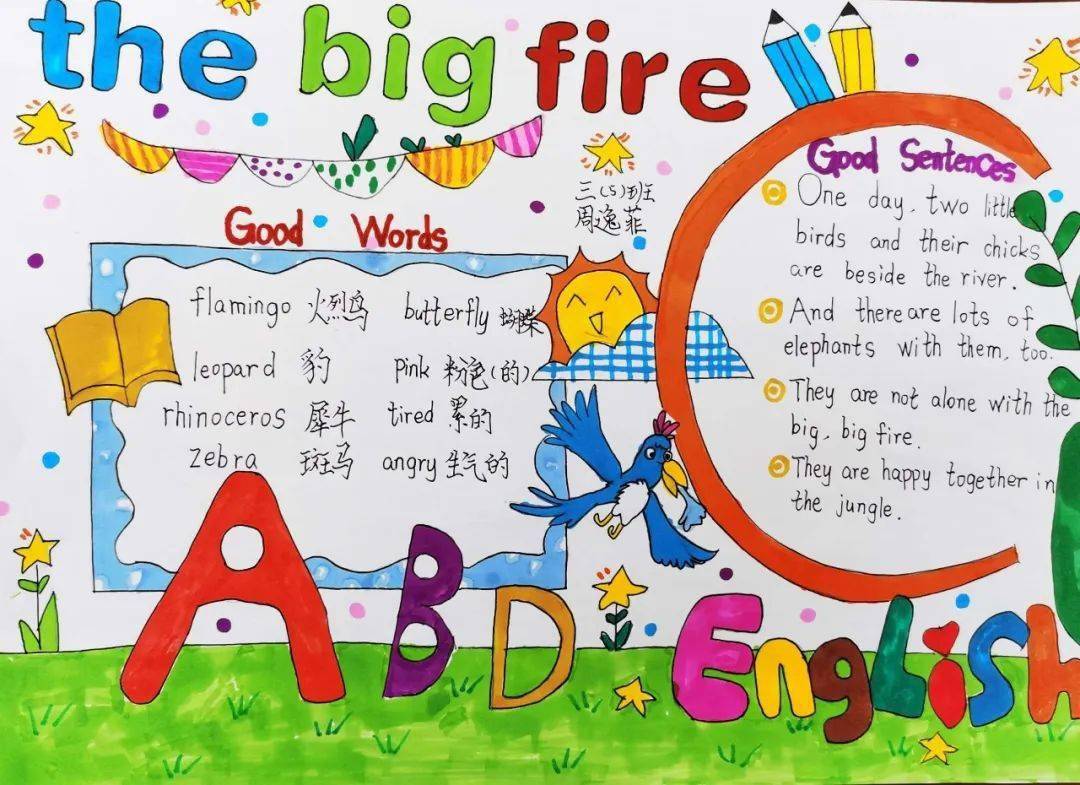 the big fire
三(5)班
周逸菲
Good Words
flamingo 火烈鸟 butterfly 蝴蝶
leopard 豹 pink 粉色(的)
rhinoceros 犀牛 tired 累的
zebra 斑马 angry 生气的
Good Sentences
One day, two little
birds and their chicks
are beside the river.
And there are lots of
elephants with them, too.
They are not alone with the
big, big fire.
They are happy together in
the jungle.
A B D English